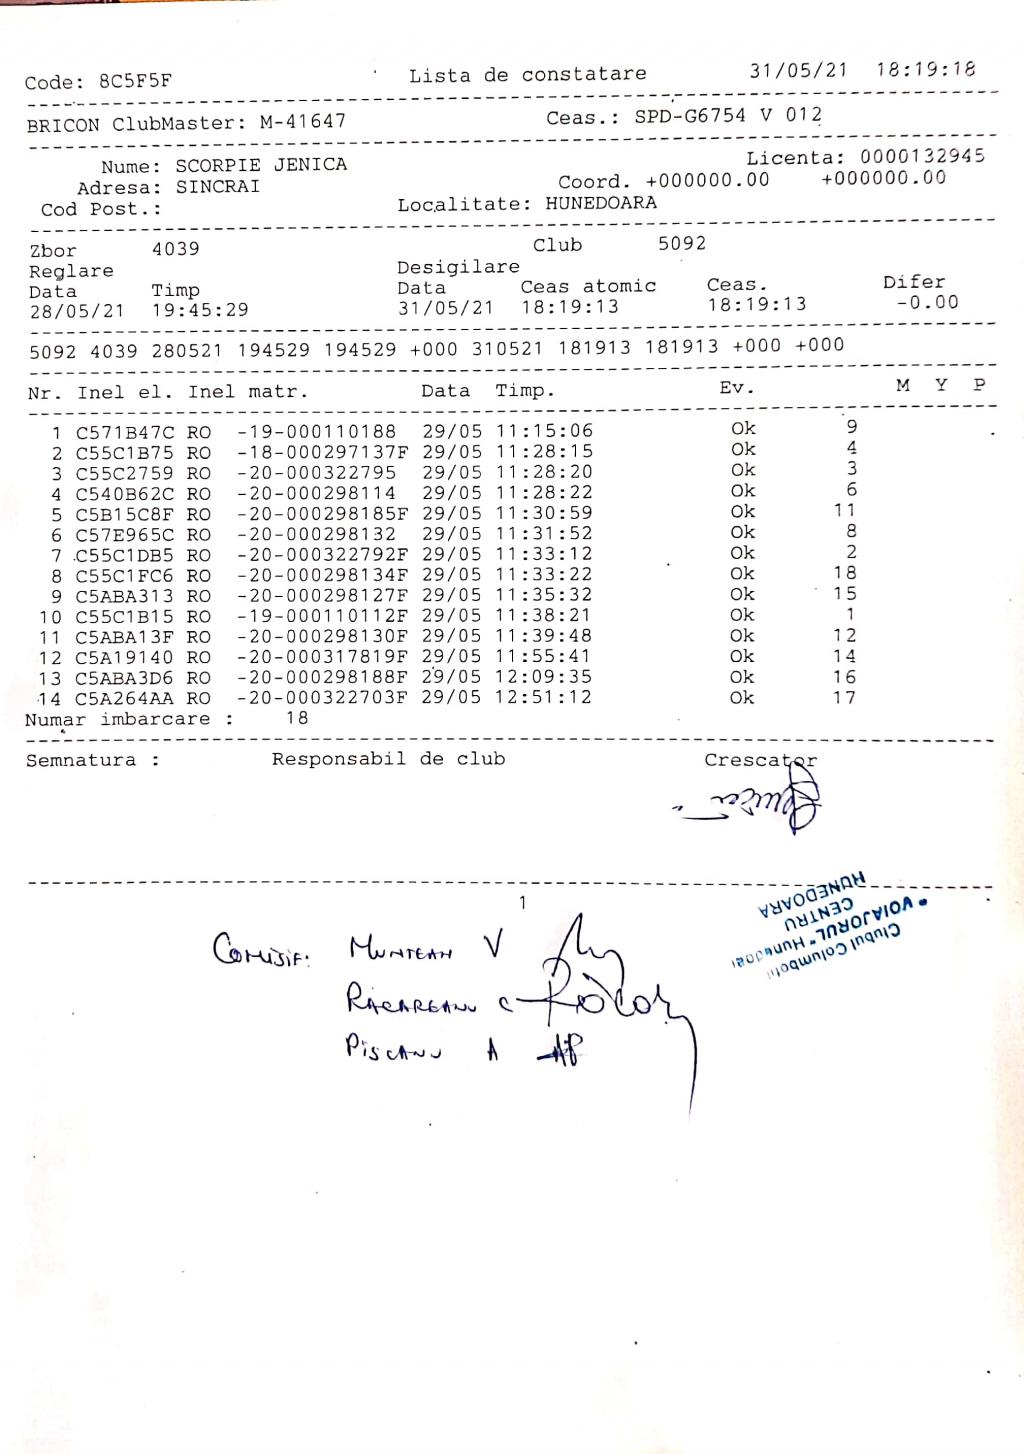 Code: 8C5F5F Lista de constatare 31/05/21 18:19:18
BRICON ClubMaster: M-41647 Ceas.: SPD-G6754 V 012
Nume: SCORPIE JENICA Licenta: 0000132945
Adresa: SINCRAI Coord. +000000.00 +000000.00
Cod Post.: Localitate: HUNEDOARA
Zbor 4039 Club 5092
Reglare Desigilare
Data Timp Data Ceas atomic Ceas. Difer
28/05/21 19:45:29 31/05/21 18:19:13 18:19:13 -0.00
5092 4039 280521 194529 194529 +000 310521 181913 181913 +000 +000
Nr. Inel el. Inel matr. Data Timp. Ev. M Y P
1 C571B47C RO -19-000110188 29/05 11:15:06 Ok 9
2 C55C1B75 RO -18-000297137F 29/05 11:28:15 Ok 4
3 C55C2759 RO -20-000322795 29/05 11:28:20 Ok 3
4 C540B62C RO -20-000298114 29/05 11:28:22 Ok 6
5 C5B15C8F RO -20-000298185F 29/05 11:30:59 Ok 11
6 C57E965C RO -20-000298132 29/05 11:31:52 Ok 8
7 C55C1DB5 RO -20-000322792F 29/05 11:33:12 Ok 2
8 C55C1FC6 RO -20-000298134F 29/05 11:33:22 Ok 18
9 C5ABA313 RO -20-000298127F 29/05 11:35:32 Ok 15
10 C55C1B15 RO -19-000110112F 29/05 11:38:21 Ok 1
11 C5ABA13F RO -20-000298130F 29/05 11:39:48 Ok 12
12 C5A19140 RO -20-000317819F 29/05 11:55:41 Ok 14
13 C5ABA3D6 RO -20-000298188F 29/05 12:09:35 Ok 16
14 C5A264AA RO -20-000322703F 29/05 12:51:12 Ok 17
Numar imbarcare : 18
Semnatura : Responsabil de club Crescator
1
Clubul Columbofil
"VOIAJORUL" Hunedoara
CENTRU
HUNEDOARA
COMISIE: MUNTEAN V
RĂCAREANU C
PISCANU A AP